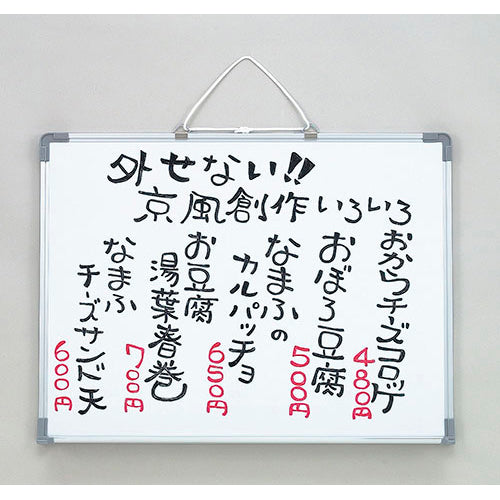 外せない!!
京風創作いろいろ
おからチーズコロッケ
480円
おぼろ豆腐
500円
なまふの
カルパッチョ
650円
お豆腐
湯葉春巻
700円
なまふ
チーズサンド天
600円